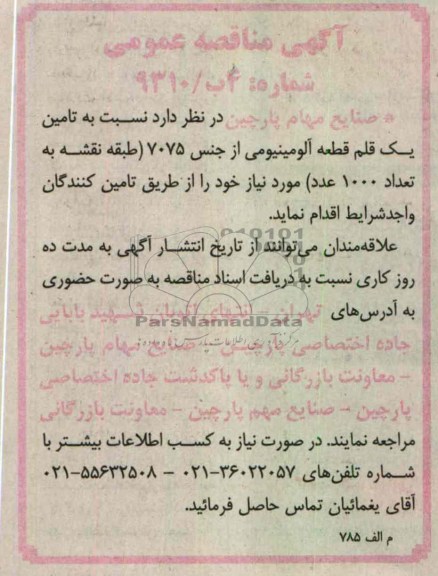 آگهی مناقصه عمومی
شماره: ۴ب/۹۳۱۰
صنایع مهام پارچین در نظر دارد نسبت به تامین
یک قلم قطعه آلومینیومی از جنس ۷۰۷۵ (طبقه نقشه به
تعداد ۱۰۰۰ عدد) مورد نیاز خود را از طریق تامین کنندگان
واجدشرایط اقدام نماید.
علاقه‌مندان می‌توانند از تاریخ انتشار آگهی به مدت ده
روز کاری نسبت به دریافت اسناد مناقصه به صورت حضوری
به آدرس‌های تهران - انتهای اتوبان شهید بابایی
ParsNamadData
جاده اختصاصی پارچین - صنایع مهام پارچین
- معاونت بازرگانی و یا پاکدشت جاده اختصاصی
پارچین - صنایع مهم پارچین - معاونت بازرگانی
مراجعه نمایند. در صورت نیاز به کسب اطلاعات بیشتر با
شماره تلفن‌های ۳۶۰۲۲۰۵۷-۰۲۱ - ۵۵۶۳۲۵۰۸-۰۲۱
آقای یغمائیان تماس حاصل فرمائید.
م الف ۷۸۵